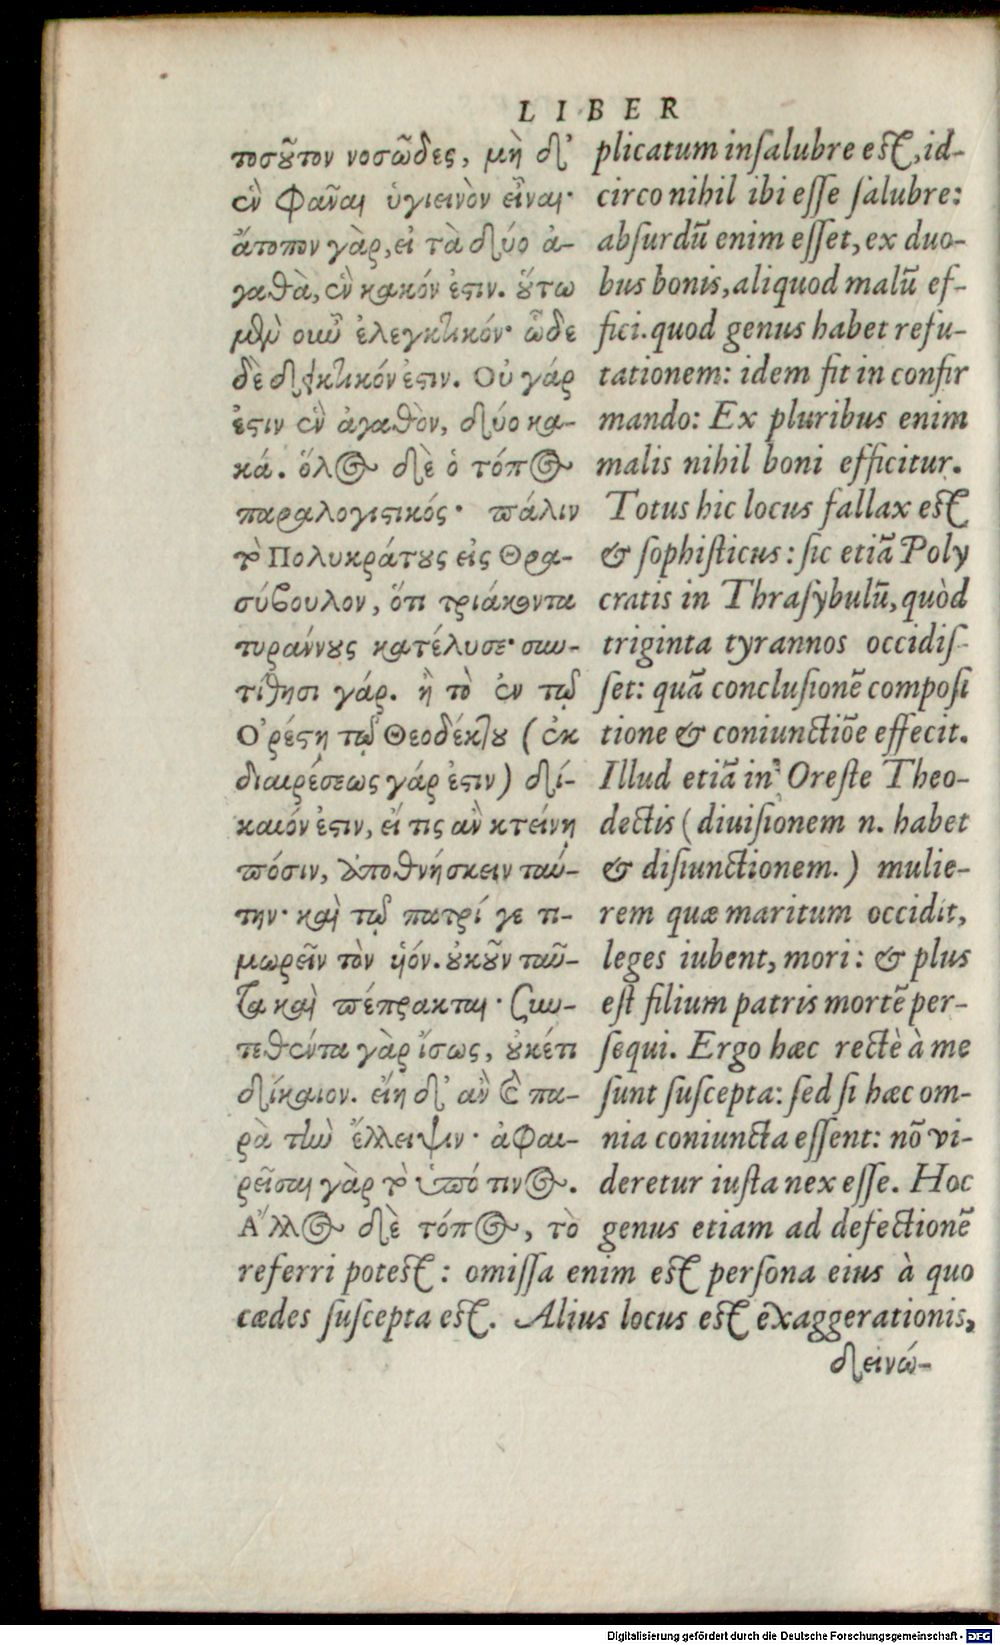 LIBER
τοσοῦτον νοσῶδες, μὴ δ'
ἓν φᾶναι ὑγιεινὸν εἶναι·
ἄτοπον γὰρ, εἰ τὰ δύο ἀ-
γαθὰ, ἓν κακόν ἐστιν. οὕτω
μὲν οὖν ἐλεγκτικόν· ὧδε
δὲ δεικτικόν ἐστιν. Οὐ γάρ
ἐστιν ἓν ἀγαθὸν, δύο κα-
κά. ὅλος δὲ ὁ τόπος
παραλογιστικός· πάλιν
τὸ Πολυκράτους εἰς Θρα-
σύβουλον, ὅτι τριάκοντα
τυράννους κατέλυσε· συν-
τίθησι γάρ. ἢ τὸ ἐν τῷ
Ὀρέστῃ τῷ Θεοδέκτου (ἐκ
διαιρέσεως γάρ ἐστιν) δί-
καιόν ἐστιν, εἴ τις ἂν κτείνῃ
πόσιν, ἀποθνήσκειν ταύ-
την· καὶ τῷ πατρί γε τι-
μωρεῖν τὸν ὑόν. οὐκοῦν ταῦ-
τα καὶ πέπρακται· συν-
τεθέντα γὰρ ἴσως, οὐκέτι
δίκαιον. εἴη δ' ἂν καὶ πα-
ρὰ τὴν ἔλλειψιν· ἀφαι-
ρεῖται γὰρ τὸ ὑπό τινος.
Ἄλλος δὲ τόπος, τὸ
plicatum insalubre est, id-
circo nihil ibi esse salubre:
absurdū enim esset, ex duo-
bus bonis, aliquod malū ef-
fici. quod genus habet refu-
tationem: idem fit in confir
mando: Ex pluribus enim
malis nihil boni efficitur.
Totus hic locus fallax est
& sophisticus: sic etiā Poly
cratis in Thrasybulū, quòd
triginta tyrannos occidis-
set: quā conclusionē composi
tione & coniunctiōe effecit.
Illud etiā in Oreste Theo-
dectis (diuisionem n. habet
& disiunctionem.) mulie-
rem quæ maritum occidit,
leges iubent, mori: & plus
est filium patris mortē per-
sequi. Ergo hæc rectè à me
sunt suscepta: sed si hæc om-
nia coniuncta essent: nō vi-
deretur iusta nex esse. Hoc
genus etiam ad defectionē
referri potest: omissa enim est persona eius à quo
cædes suscepta est. Alius locus est exaggerationis,
δεινώ-
Digitalisierung gefördert durch die Deutsche Forschungsgemeinschaft - DFG